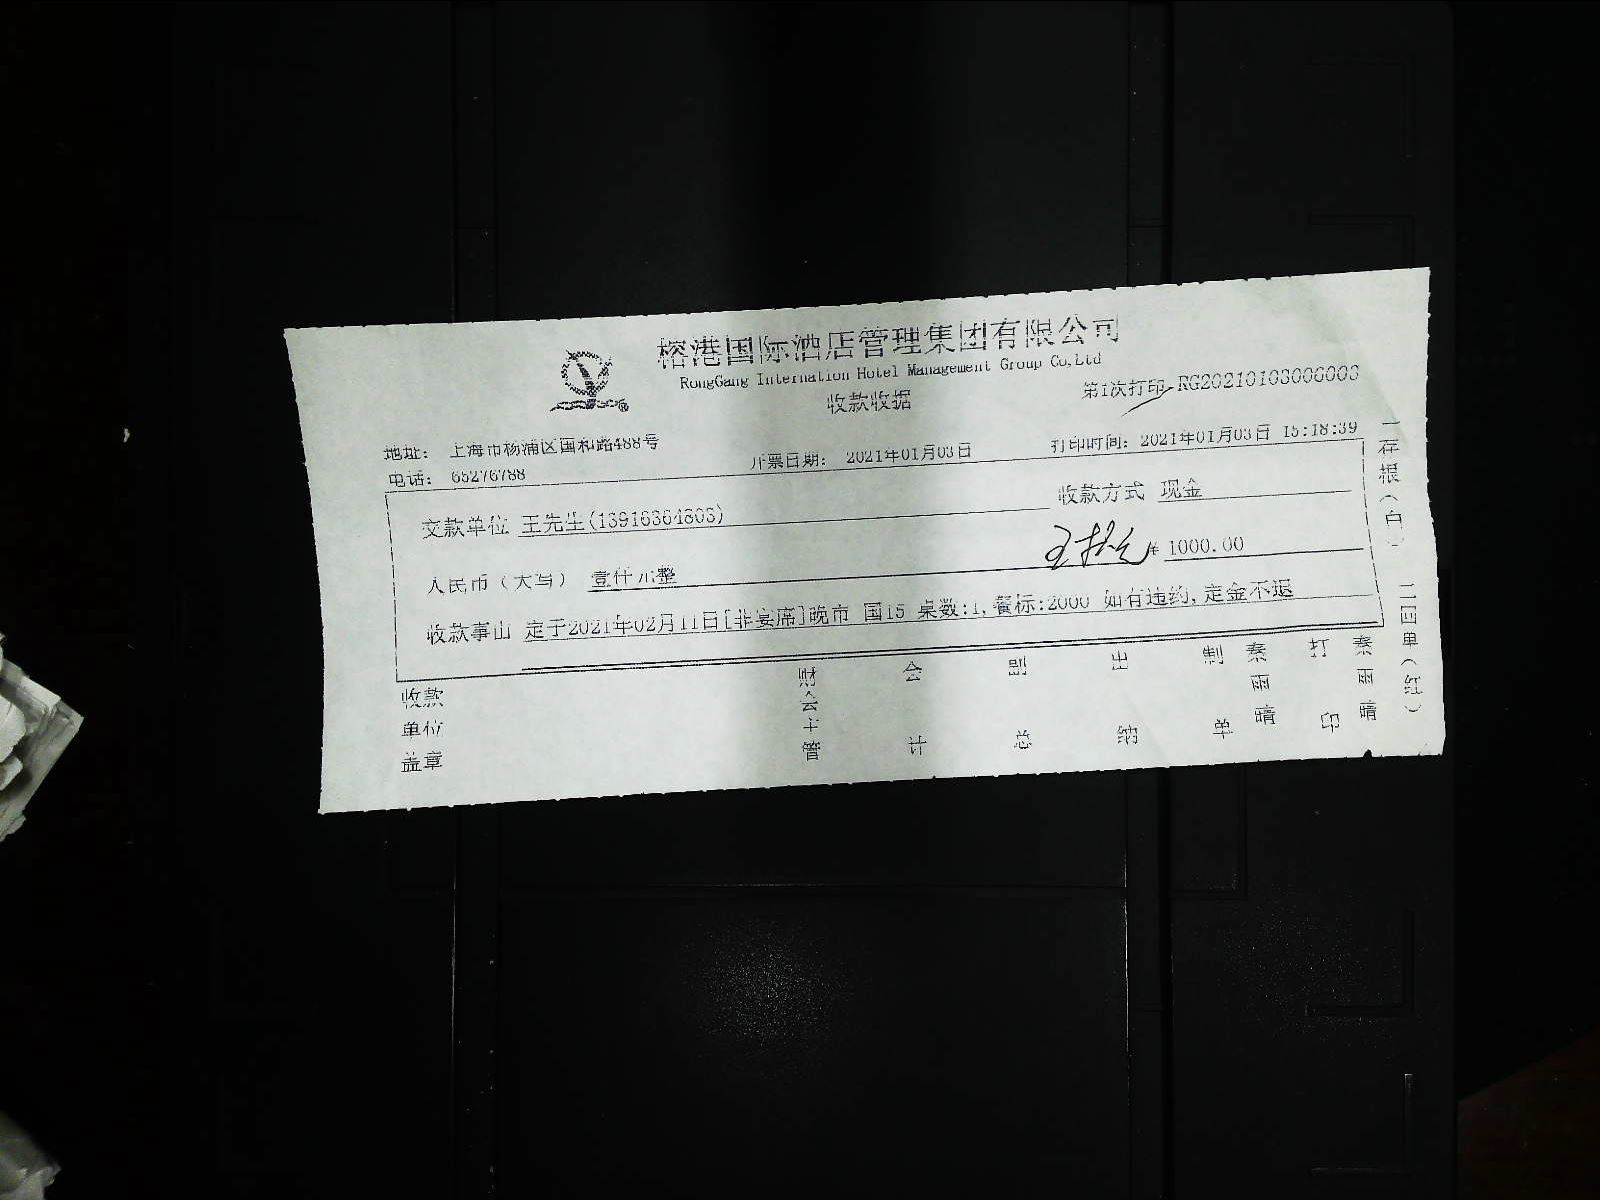 榕港国际酒店管理集团有限公司
RongGang Internation Hotel Management Group Co,Ltd
收款收据
第1次打印 RG20210103006003
地址： 上海市杨浦区国和路488号
电话： 65276788
开票日期： 2021年01月03日
打印时间： 2021年01月03日 15:18:39
交款单位 王先生(13916364803)
收款方式 现金
人民币（大写） 壹仟元整
¥ 1000.00
收款事由 定于2021年02月11日[非宴席]晚市 国15 桌数:1,餐标:2000 如有违约,定金不退
收款单位盖章
财会主管
会计
副总
出纳
制单
秦雨晴
打印
秦雨晴
一存根（白） 二回单（红）